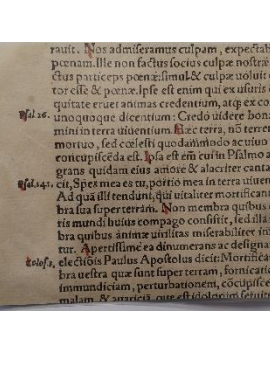 rauit. Nos admiseramus culpam, expectab
pœnam. Ille non factus socius culpæ nostræ
ctus particeps pœnæ: simul & culpæ uoluit
tor esse & pœnæ. Ipse est enim qui ex usuris
quitate eruet animas credentium, atq; ex co
Psal. 26. unoquoque dicentium: Credo uidere bona
mini in terra uiuentium. Hæc terra, nō terre
mortuo, sed cœlesti quodammodo ac uiuo
concupiscēda est. Ipsa est em̄ cui' in Psalmo a
grans quidam eius amore & alacriter canta
Psal. 141. cit, Spes mea es tu, portio mea in terra uiuent
Ad quā illi tendunt, qui uitaliter mortificant
bra sua super terrām. Non membra quibus c
ris mundi huius compago consistit, sed illa
bra quibus animæ uirilitas miserabiliter in
tur. Apertissime ea dinumerans ac designat
Colos. 3. electiōis Paulus Apostolus dicit: Mortificat
bra uestra quæ sunt super terram, fornicati
immundiciam, perturbationem, cōcupisce
malam, & auariciā, quæ est idolorum seruit